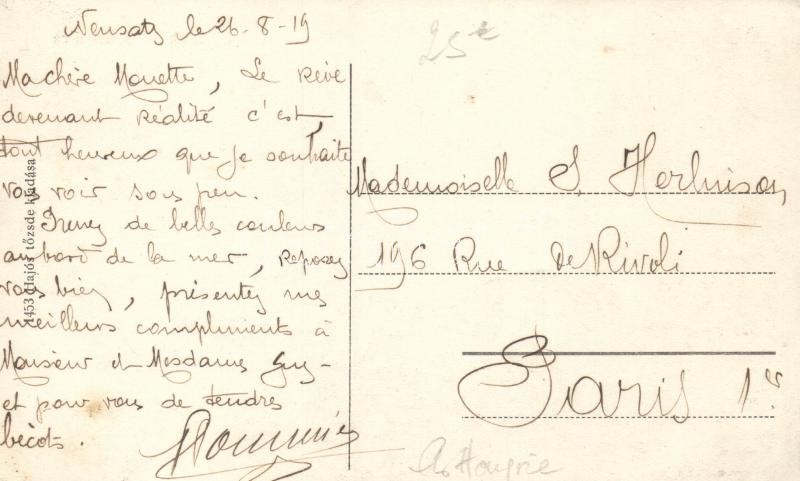 Neusatz le 26-8-19
25 c
Ma chère Mouette, Le rêve
devenant réalité c'est,
tout heureux que je souhaite
vous voir sous peu.
Prenez de belles couleurs
au bord de la mer, reposez
vous bien, présentez mes
meilleurs compliments à
Monsieur et Mesdames Guy-
et pour vous de tendres
bécots.
Mademoiselle S. Herluison
196 Rue De Rivoli
Paris 1er
Hongrie
1453 Hajós tőzsde kiadása